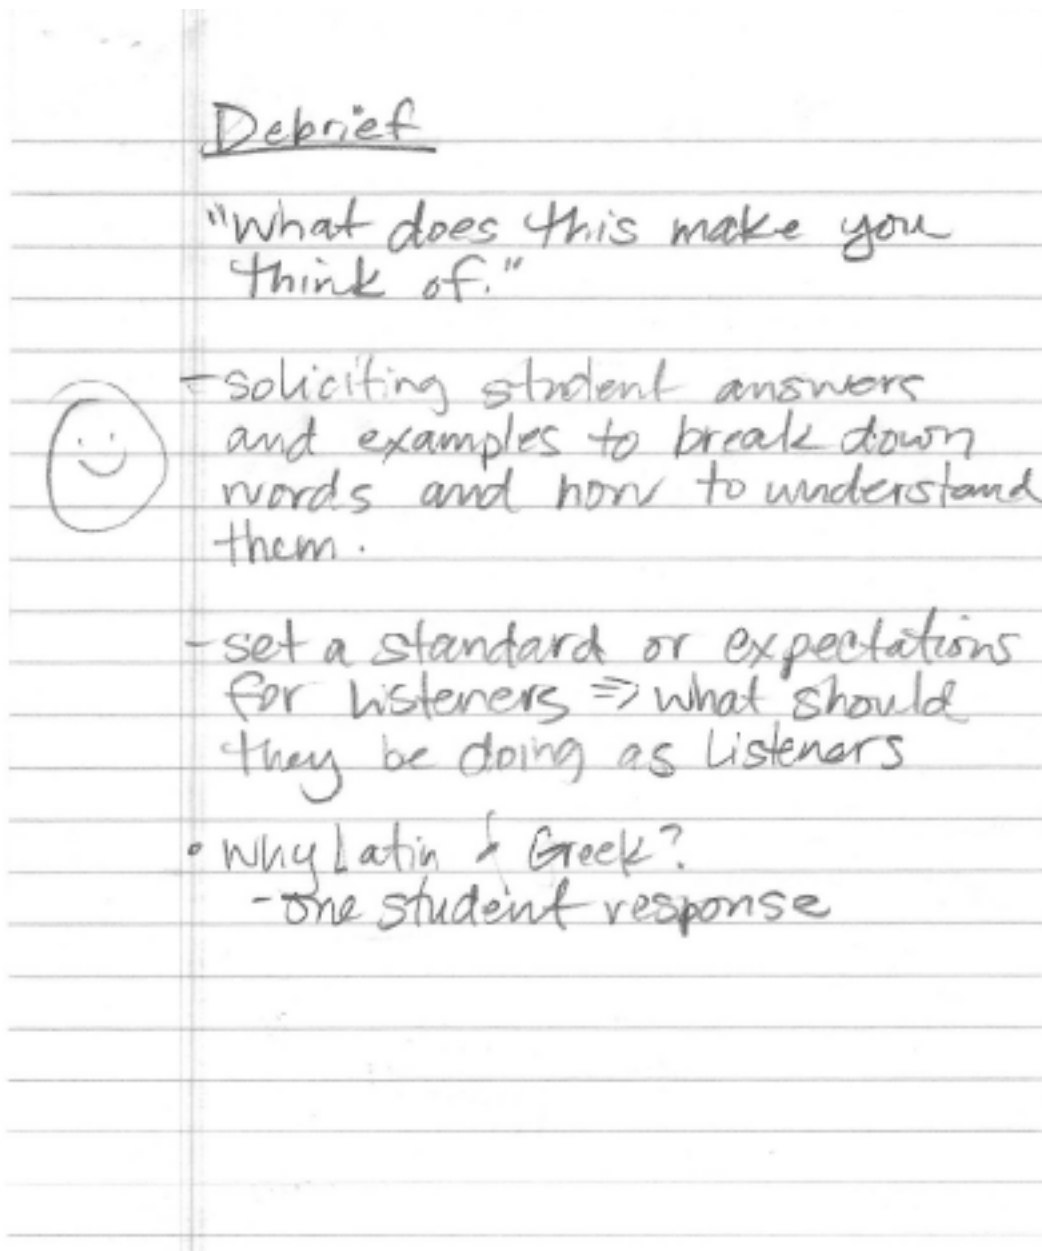 Debrief
"What does this make you
think of."
- soliciting student answers
and examples to break down
words and how to understand
them.
- set a standard or expectations
for listeners ⇒ what should
they be doing as Listeners
• Why Latin & Greek?
- one student response